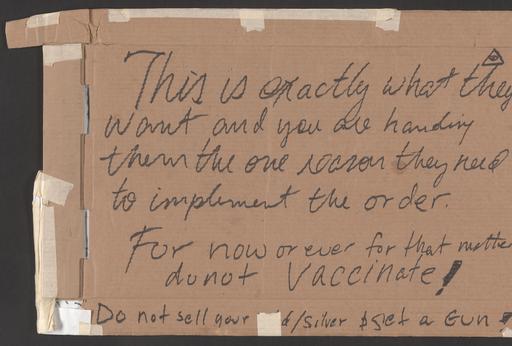 This is exactly what they
want and you are handing
them the one reason they need
to implement the order.
For now or ever for that matte
do not Vaccinate!
Do not sell your d/silver $ get a Gun